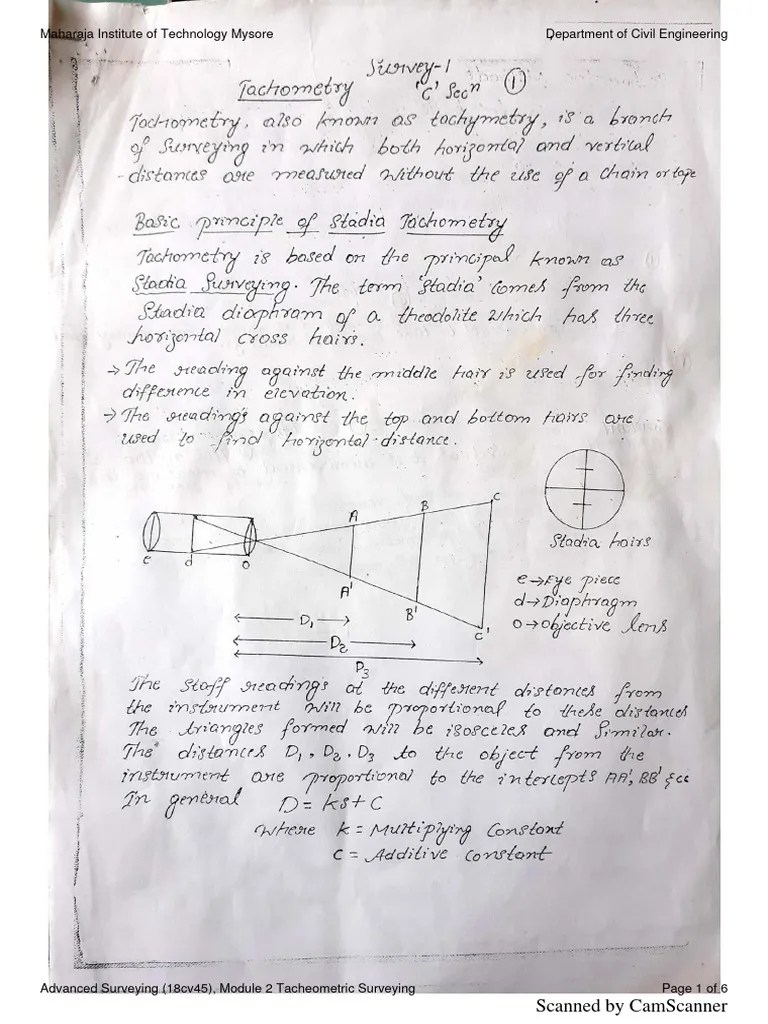 Maharaja Institute of Technology Mysore
Department of Civil Engineering
Survey-1
Tachometry
'C' Secn
1
Tachometry, also known as tachymetry, is a branch
of Surveying in which both horizontal and vertical
distances are measured without the use of a chain or tape
Basic principle of Stadia Tachometry
Tachometry is based on the principal known as
Stadia Surveying. The term 'Stadia' comes from the
Stadia diaphram of a theodolite which has three
horizontal cross hairs.
→ The reading against the middle hair is used for finding
difference in elevation.
→ The readings against the top and bottom hairs are
used to find horizontal distance.
A B C
e d o
A' B' C'
D1
D2
D3
Stadia hairs
e→Eye piece
d→Diaphragm
o→objective lens
The staff readings at the different distances from
the instrument will be proportional to these distances
The triangles formed will be isosceles and Similar.
The distances D1, D2, D3 to the object from the
instrument are proportional to the intercepts AA', BB' & cc
In general D = ks + C
Where k = Multiplying Constant
C = Additive constant
Advanced Surveying (18cv45), Module 2 Tacheometric Surveying
Page 1 of 6
Scanned by CamScanner